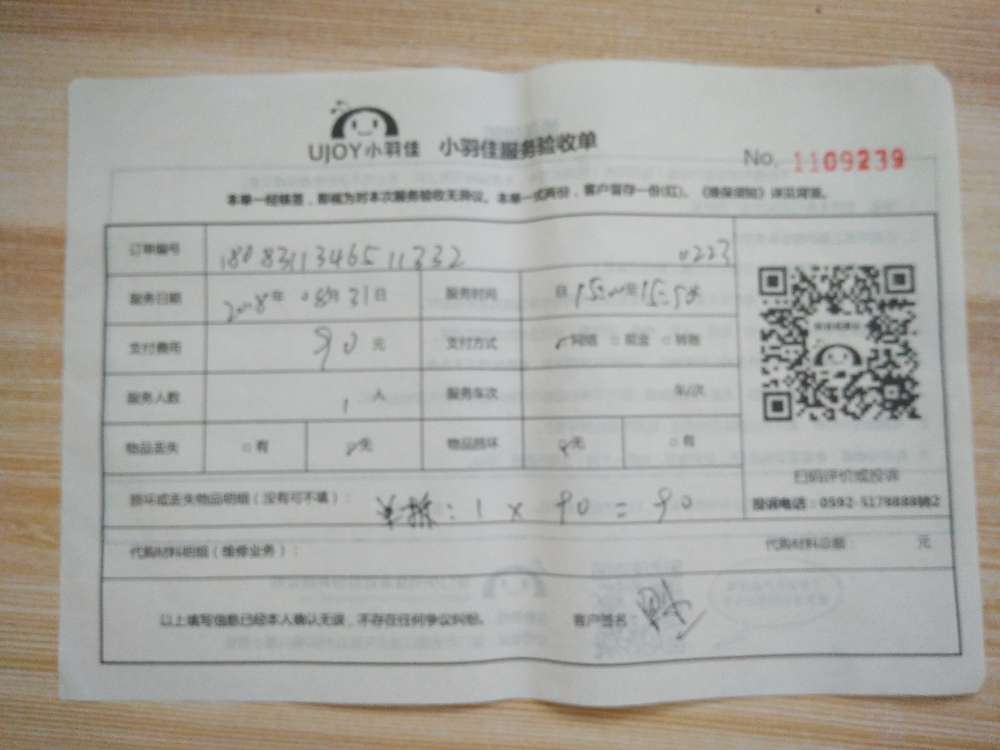 UJOY小羽佳 小羽佳服务验收单
No. 1109239
本单一经签署，即视为对本次服务验收无异议。本单一式两份，客户留存一份(红)。《维保须知》详见背面。
订单编号 180831134651332 0223
服务日期 2018年 08月 31日 服务时间 自 15:00至15:50
支付费用 90 元 支付方式 网络 □ 现金 □ 转账
服务人数 1 人 服务车次 车/次
物品丢失 □ 有 无 物品损坏 无 □ 有
扫码评价或投诉
损坏或丢失物品明细（没有可不填）： 单拆：1 × 90 = 90
投诉电话：0592-5178888转2
代购材料明细（维修业务）： 代购材料总额： 元
以上填写信息已经本人确认无误，不存在任何争议纠纷。 客户签名：